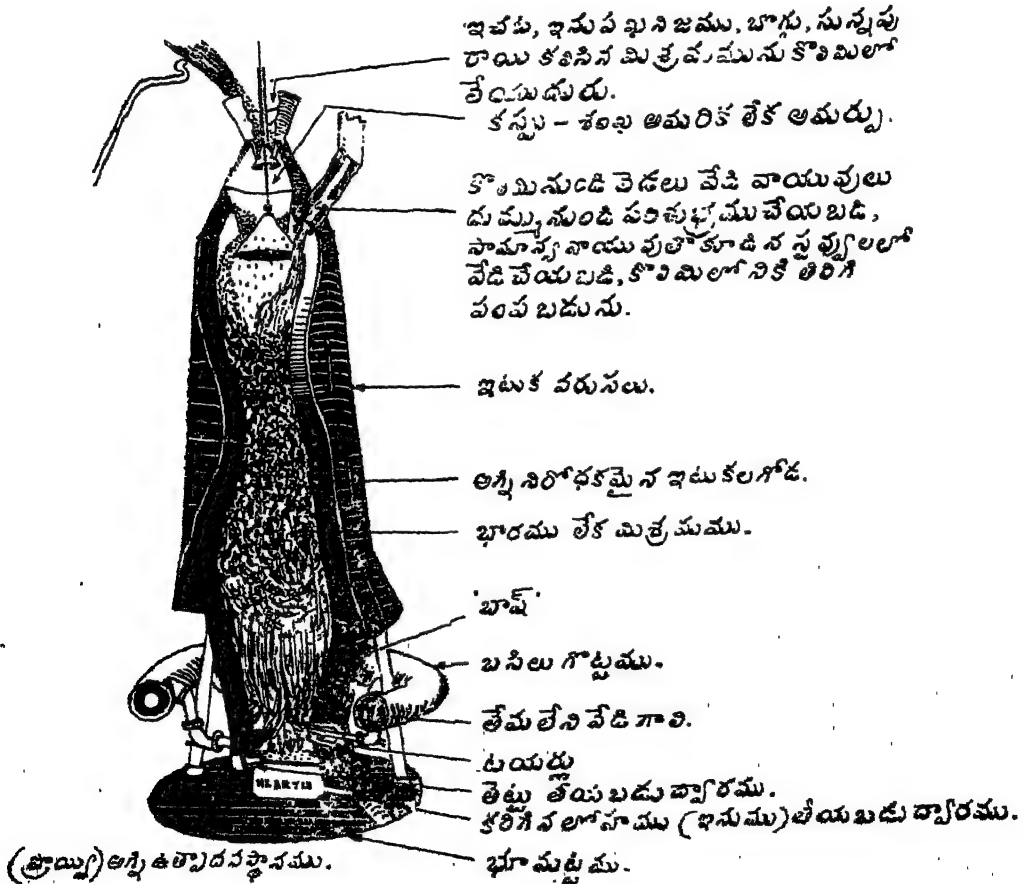 ఇచట, ఇనుప ఖనిజము, బొగ్గు, సున్నపు
రాయి కలిసిన మిశ్రమమును కొలిమిలో
వేయుదురు.
కప్పు - శంఖ అమరిక లేక అమర్పు.
కొలిమినుండి వెడలు వేడి వాయువులు
దుమ్మునుండి పరిశుభ్రముచేయబడి,
సామాన్య వాయువుతోకూడిన స్టవ్వులలో
వేడిచేయబడి, కొలిమిలోనికి తిరిగి
పంపబడును.
ఇటుక వరుసలు.
అగ్నినిరోధకమైన ఇటుకలగోడ.
భారము లేక మిశ్రమము.
'బాష్'
బసిలు గొట్టము.
తేమలేని వేడి గాలి.
టయర్లు
తెట్టు తీయబడు ద్వారము.
HEARTH
కరిగిన లోహము (ఇనుము) తీయబడు ద్వారము.
(ప్రొయ్యి) అగ్ని ఉత్పాదనస్థానము.
భూమట్టము.